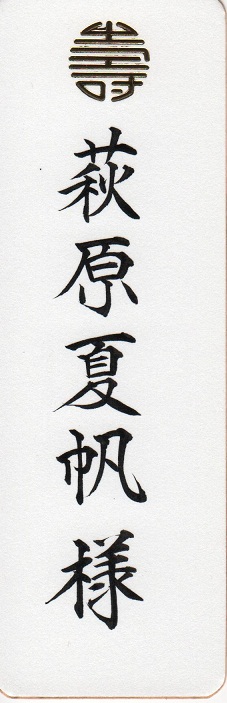 壽
萩原夏帆様